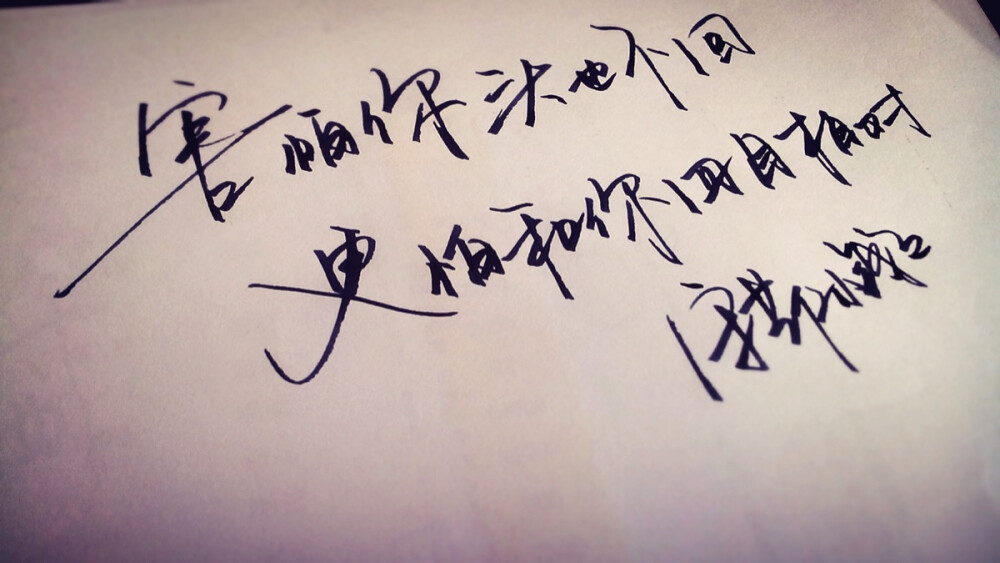 害怕你头也不回
更怕和你四目相对